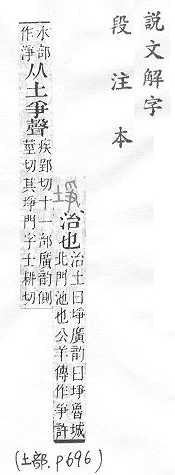 説文解字
段注本
埩
治也
治土曰埩廣韵曰埩魯城
北門池也公羊傳作爭許
水部
作淨
从土爭聲
疾郢切十一部廣韵側
莖切其埩門字士耕切
(土部.p696)